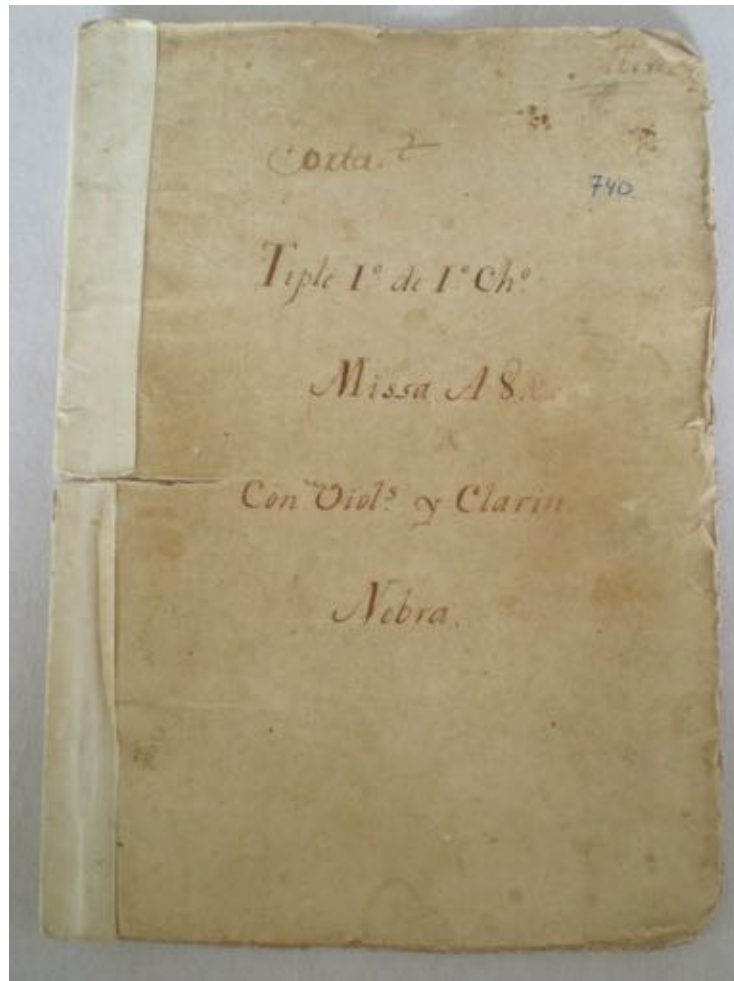 Corta.
740.
Tiple 1º de 1º Chº
Missa A 8.
Con Violˢ y Clarin
Nebra.